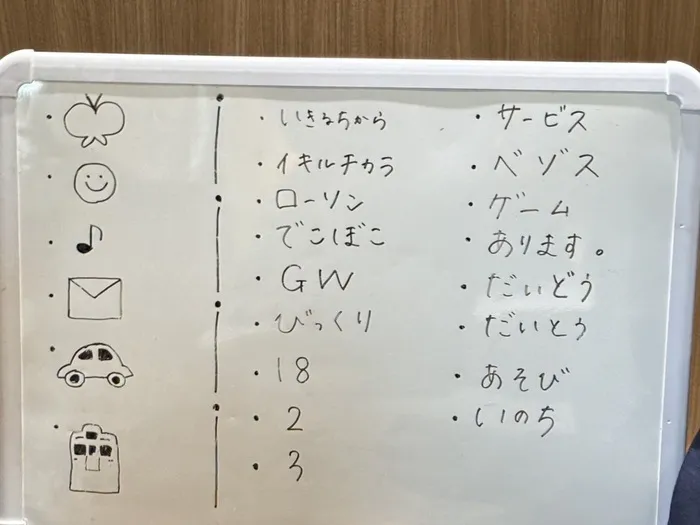 ・いきるちから
・イキルチカラ
・ローソン
・でこぼこ
・GW
・びっくり
・18
・2
・3
・サービス
・ベゾス
・ゲーム
・あります。
・だいどう
・だいとう
・あそび
・いのち